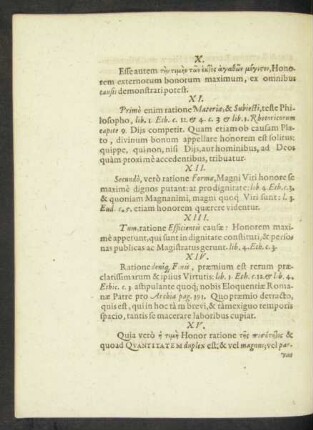 X.
Esse autem τὴν τιμὴν τῶν ἐκτὸς ἀγαθῶν μέγιστον, Hono-
rem externorum bonorum maximum, ex omnibus
causis demonstrari potest.
XI.
Primò enim ratione Materiæ, & Subiecti, teste Phi-
losopho, lib. 1. Eth. c. 12. & 4. c. 3. & lib. 2. Rhetoricorum
capite 9. Dijs competit. Quam etiam ob causam Pla-
to, divinum bonum appellare honorem est solitus;
quippe, qui non, nisi Dijs, aut hominibus, ad Deos
quàm proximè accedentibus, tribuatur.
XII.
Secundò, verò ratione Formæ, Magni Viri honore se
maximè dignos putant: at pro dignitate: lib. 4. Eth. c. 3.
& quoniam Magnanimi, magni quoq; Viri sunt: l. 3.
Eud. etiam honorem quærere videntur.
XIII.
Tum, ratione Efficientis causæ: Honorem maxi-
mè appetunt, qui sunt in dignitate constituti, & perso-
nas publicas ac Magistratus gerunt. lib. 4. Eth. c. 3.
XIV.
Ratione Finis, præmium est rerum præ-
clarissimarum & ipsius Virtutis: lib. 1. Eth. c. 12. & lib. 4.
Ethic. c. 3. astipulante quoq; nobis Eloquentiæ Roma-
næ Patre pro Archia pag. Quo præmio detracto,
quis est, qui in hoc tā m brevi, & tàm exiguo temporis
spacio, tantis se macerare laboribus cupiat.
XV.
Quia verò ἡ τιμὴ Honor ratione τῆς ποσότητος &
quoad QVANTITATEM duplex est; & vel magnus, vel par-
vus